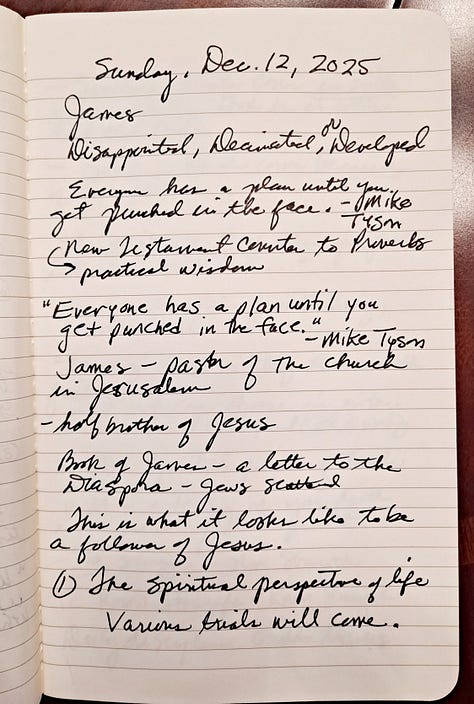 Sunday, Dec. 12, 2025
James
Disappointed, Decimated, or Developed
Everyone has a plan until you
get punched in the face. - Mike
Tyson
New Testament Counter to Proverbs
practical wisdom
"Everyone has a plan until you
get punched in the face."
- Mike Tyson
James - pastor of the church
in Jerusalem
- half brother of Jesus
Book of James - a letter to the
Diaspora - Jews scattered
This is what it looks like to be
a follower of Jesus.
① The spiritual perspective of life
Various trials will come.